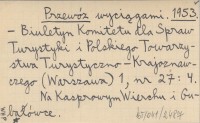 Przewóz wyciągami. 1953.
- Biuletyn Komitetu dla Spraw
Turystyki i Polskiego Towarzy-
stwa Turystyczno-Krajoznaw-
czego (Warszawa) 1, nr 27: 4.
Na Kasprowym Wierchu i Gu-
bałówce.